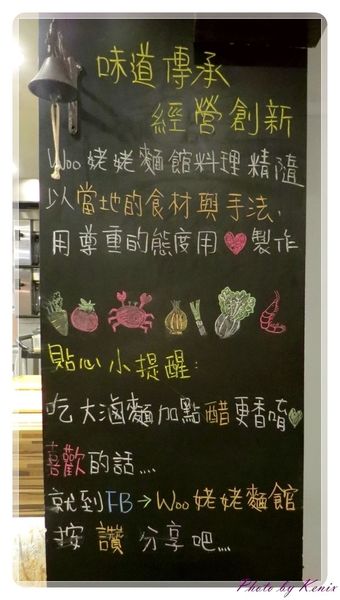 味道傳承
經營創新
Woo姥姥麵館料理精隨
以當地的食材與手法,
用尊重的態度用♥製作
貼心小提醒:
吃大滷麵加點醋更香唷♥
喜歡的話....
就到FB→Woo姥姥麵館
按讚分享吧...
Photo by Kenix